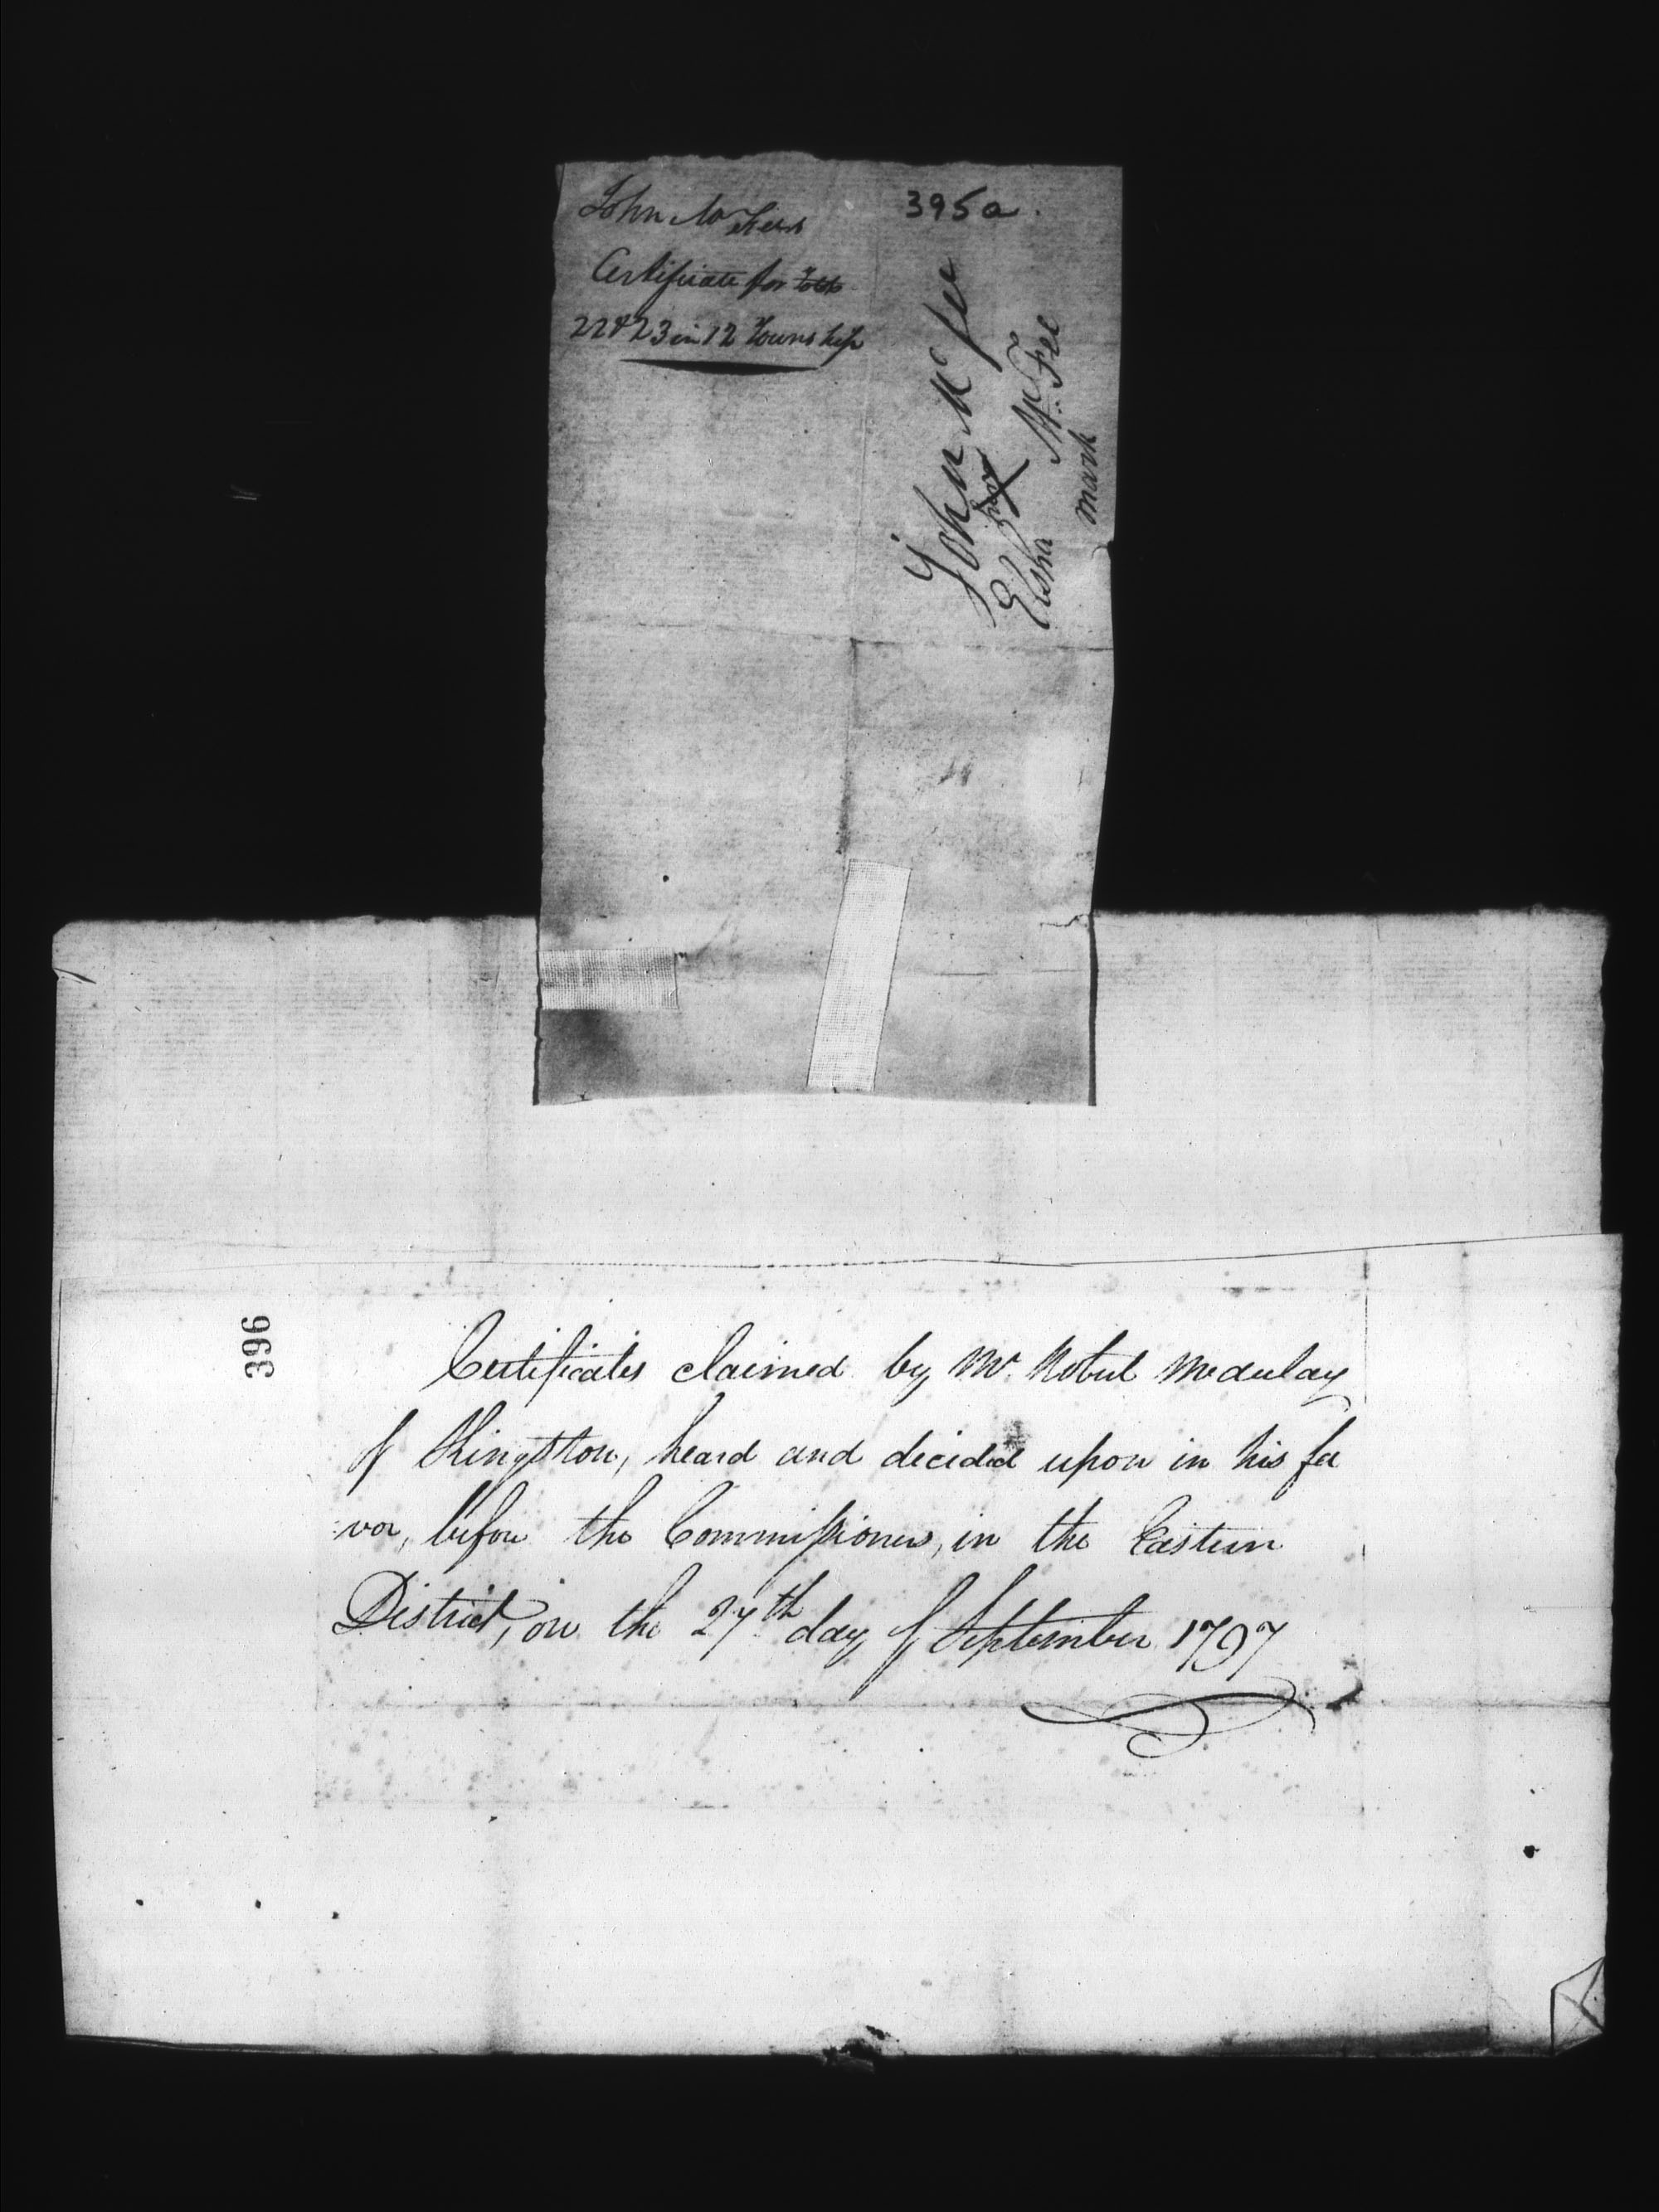 John McFees
Certificate for Lots
22 & 23 in 12 Township
395a.
John McFee
her
Elsha X McFee
mark
396
Certificates claimed by Mr. Robert Mcaulay
of Kingston, heard and decided upon in his fa
vor, before the Commissioners, in the Eastern
District, on the 27th day of September 1797